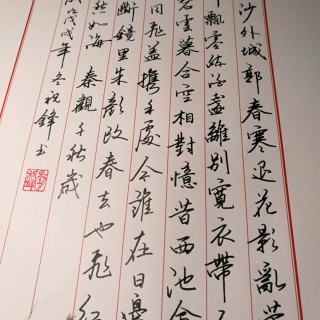 沙外城郭春寒退花影亂
飄零疏酒盞離別寬衣帶
碧雲暮合空相對憶昔西池會
同飛蓋攜手處今誰在日邊
斷鏡里朱顏改春去也飛紅
愁如海 秦觀千秋歲
戊戌年冬祝鋒书